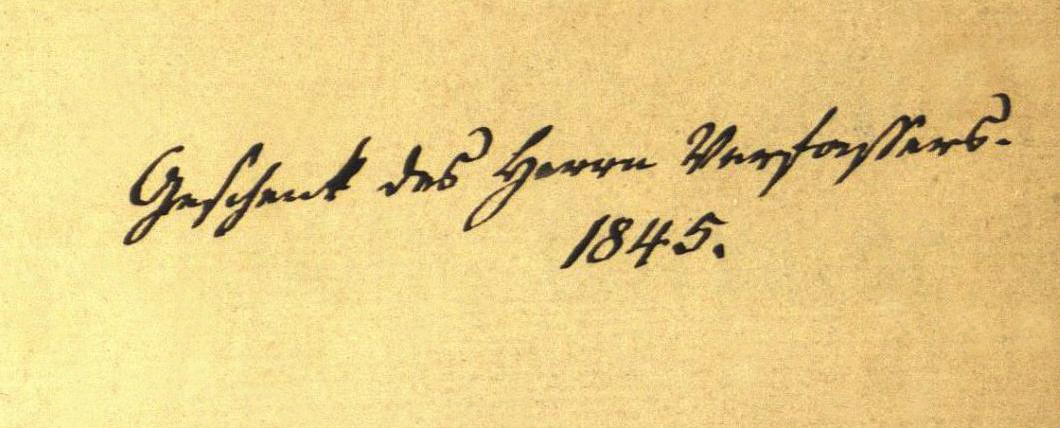 Geschenk des Herrn Verfassers.
1845.